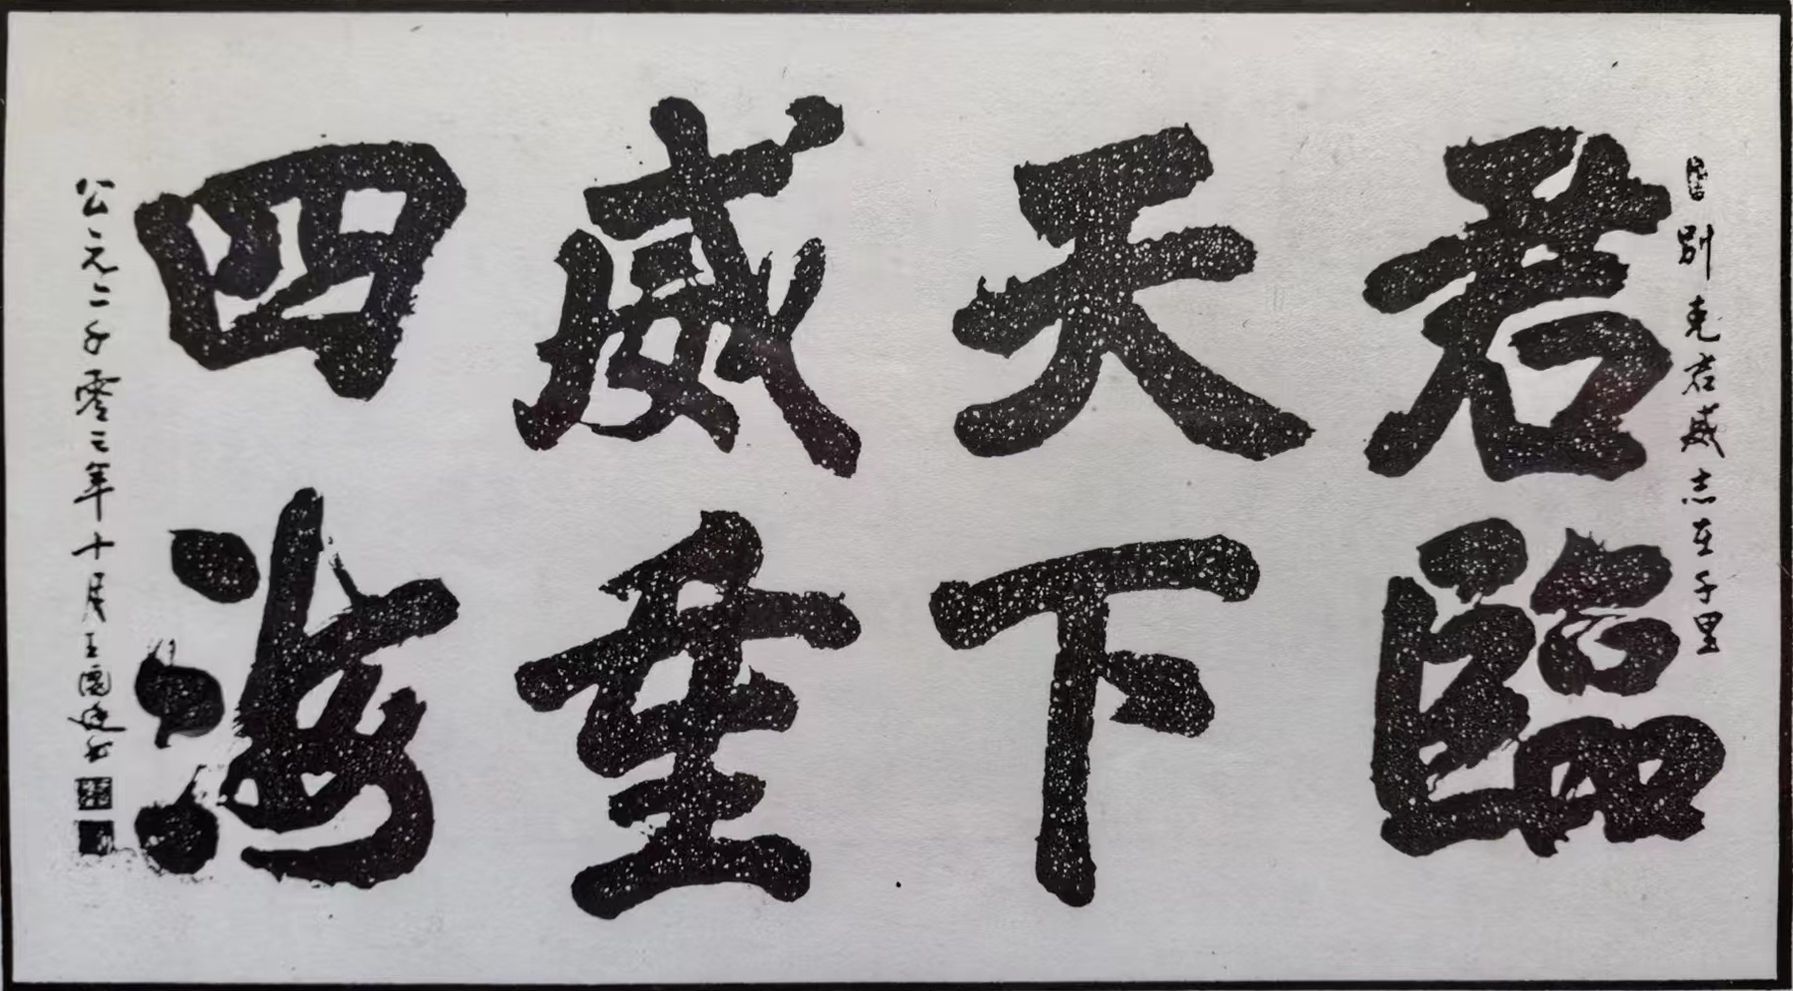 别克君威志在千里
君臨
天下
威垂
四海
公元二千零三年十月王國